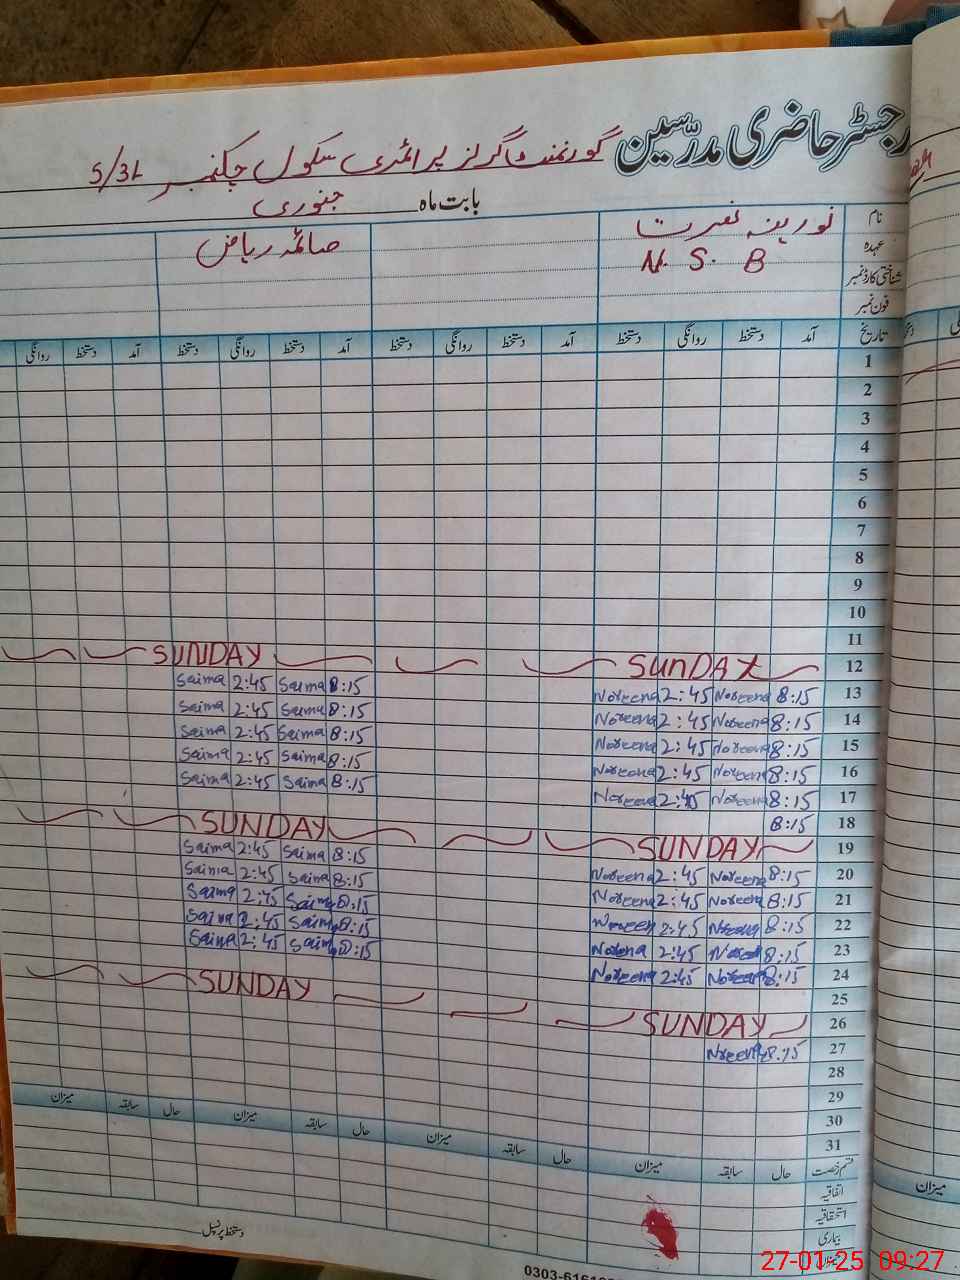 رجسٹر حاضری مدرسین گورنمنٹ گرلز پرائمری سکول چکنمبر 5/3L
بابت ماہ جنوری
نام نورینہ نصرت صائمہ ریاض
عہدہ N. S. B
شناختی کارڈ نمبر
فون نمبر
تاریخ آمد دستخط روانگی دستخط آمد دستخط روانگی دستخط آمد دستخط روانگی دستخط آمد دستخط روانگی
1
2
3
4
5
6
7
8
9
10
11
12 SUNDAY SUNDAY
13 8:15 Noreena 2:45 Noreena 8:15 Saima 2:45 Saima
14 8:15 Noreena 2:45 Noreena 8:15 Saima 2:45 Saima
15 8:15 Noreena 2:45 Noreena 8:15 Saima 2:45 Saima
16 8:15 Noreena 2:45 Noreena 8:15 Saima 2:45 Saima
17 8:15 Noreena 2:45 Noreena 8:15 Saima 2:45 Saima
18 8:15
19 SUNDAY SUNDAY
20 8:15 Noreena 2:45 Noreena 8:15 Saima 2:45 Saima
21 8:15 Noreena 2:45 Noreena 8:15 Saima 2:45 Saima
22 8:15 Noreena 2:45 Noreen 8:15 Saima 2:45 Saima
23 8:15 2:45 Norena 8:15 Saima 2:45 Saima
24 8:15 Noreena 2:45 Noreena 8:15 Saima 2:45 Saima
25
26 SUNDAY SUNDAY
27 8:15 Noreena
28
29
30
31
قسم رخصت حال سابقہ میزان حال سابقہ میزان حال سابقہ میزان حال سابقہ میزان
اتفاقیہ
استحقاقیہ
بیماری
میزان
میزان
دستخط پرنسپل
27-01-25 09:27